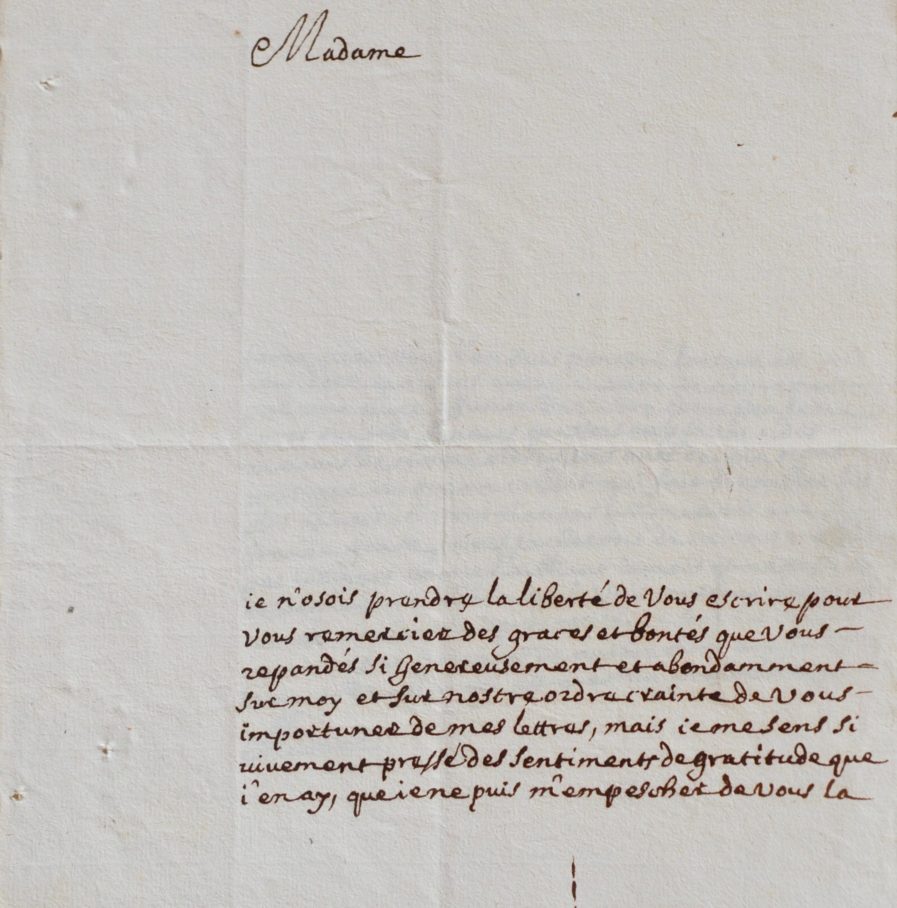 Madame
ie n'osois prendre la liberté de Vous escrire pour
Vous remercier des graces et bontés que Vous –
repandés si Genereusement et abondamment –
sur moy et sur nostre ordre crainte de Vous –
importuner de mes lettres, mais ie me sens si
vivement pressé des sentiments de gratitude que
i'en ay, que ie ne puis m'empescher de Vous la